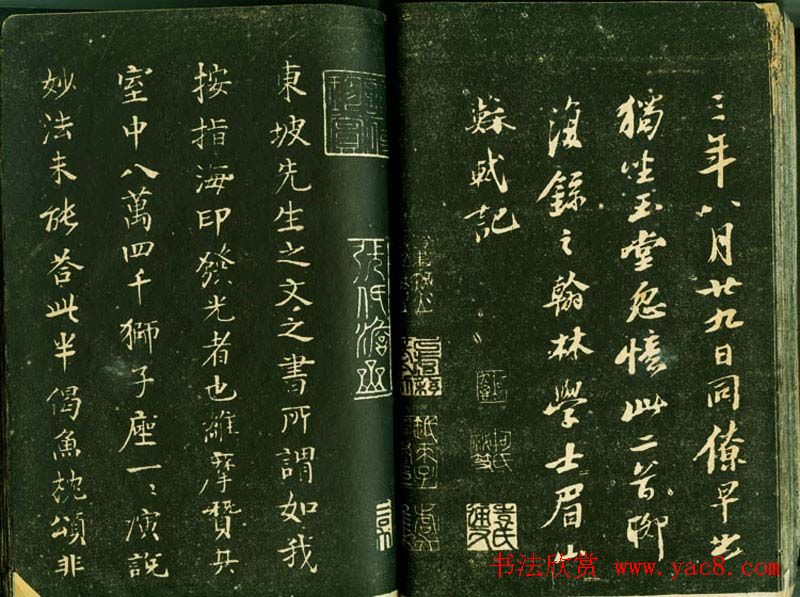 三年八月廿九日同僚早出
獨坐玉堂忽憶此二首聊
復錄之翰林學士眉山
蘇軾記
東坡先生之文之書所謂如我
按指海印發光者也維摩贊其
室中八萬四千獅子座一一演說
妙法未能答此半偈魚枕頌非
书法欣赏 www.yac8.com